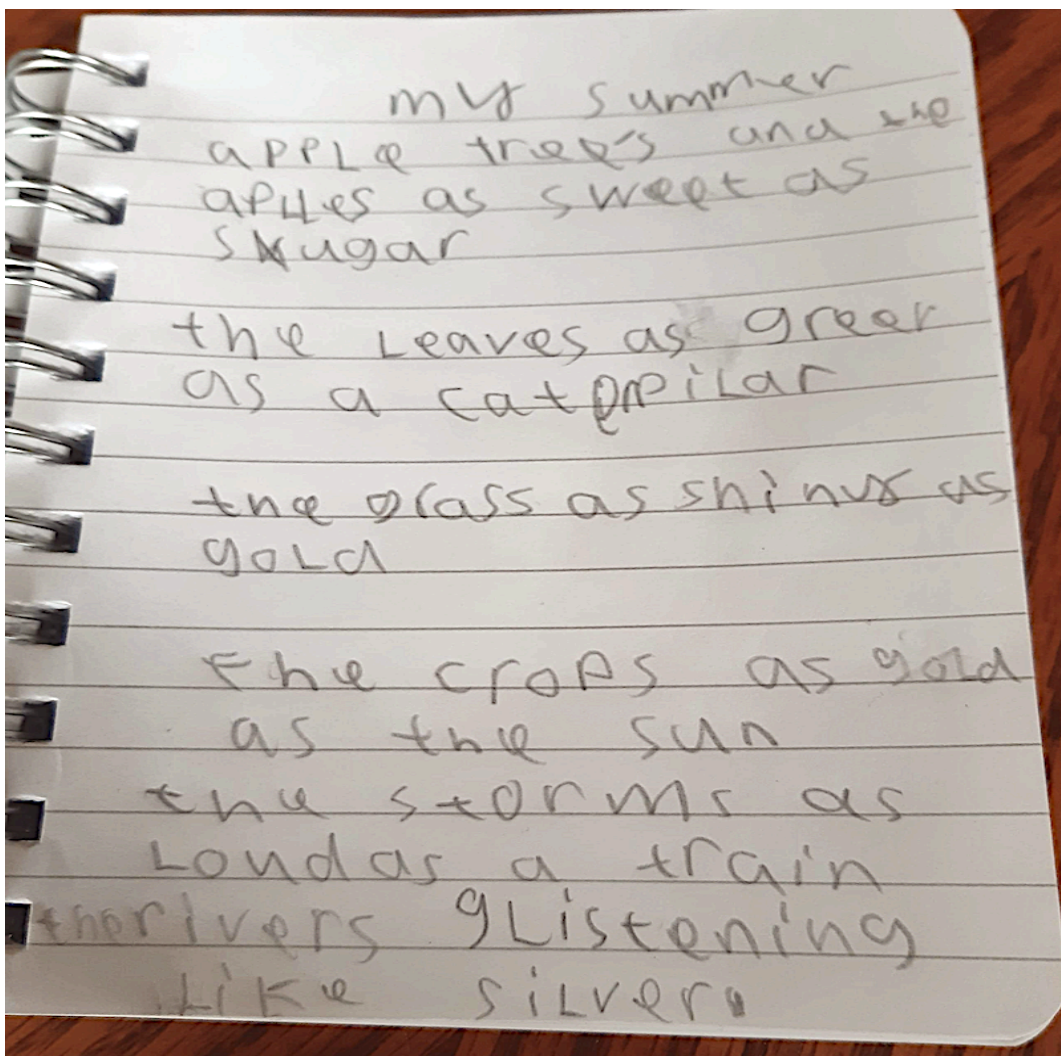 my summer
apple trees and the
aplles as sweet as
shugar
the leaves as green
as a caterpilar
the grass as shiny as
gold
the crops as gold
as the sun
the storms as
loud as a train
the rivers glistening
like silver.